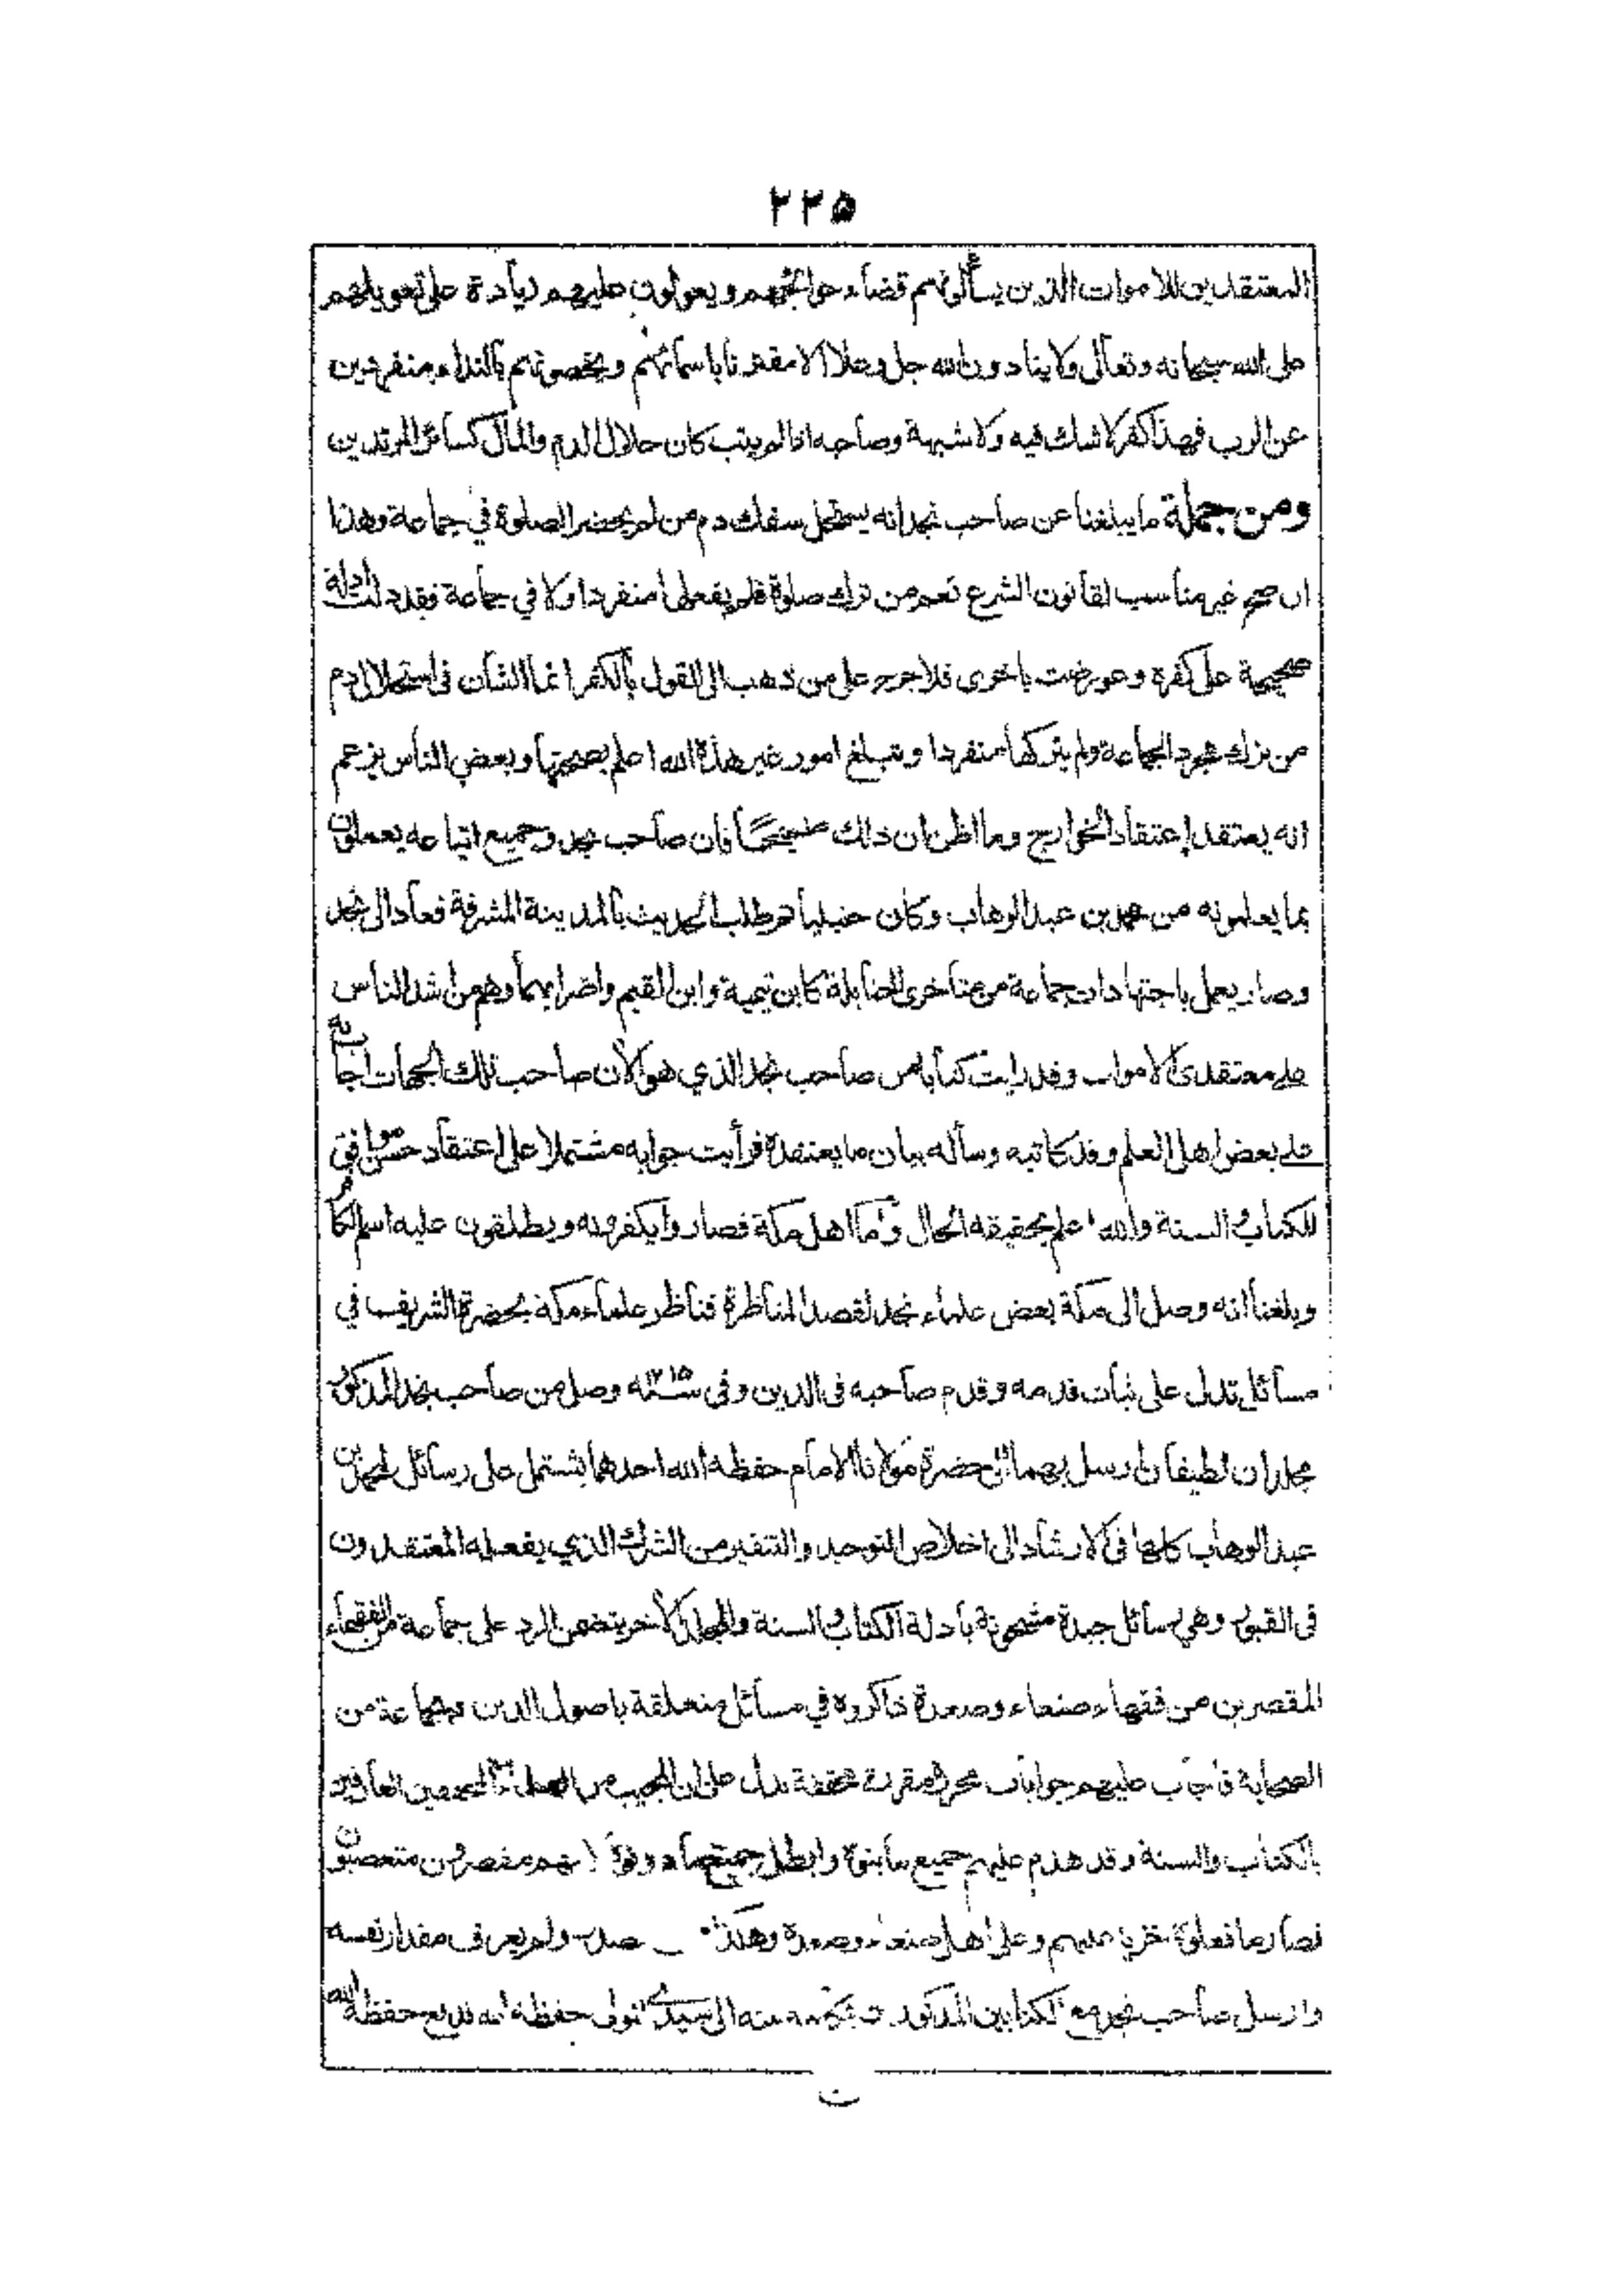 ٢٢٥
المعتقدين للاموات الذين يسألونهم قضاء حوائجهم ويعولون عليهم زيادة على تعويلهم
على الله سبحانه وتعالى ولا ينادون الله جل وعلا الا مقترنا باسمائهم ويخصونهم بالنداء منفردين
عن الرب فهذا كفر لا شك فيه ولا شبهة وصاحبه اذا لم يتب كان حلال الدم والمال كسائر المرتدين
ومن جملة ما يبلغنا عن صاحب نجد انه يستحل سفك دم من لم يحضر الصلوة في جماعة وهذا
ان صح غير مناسب لقانون الشرع نعم من ترك صلوة فلم يفعلها منفردا ولا في جماعة فقد دلت ادلة
صحيحة على كفره وعورضت باخرى فلا حرج على من ذهب الى القول بالكفر انما الشأن في استحلال دم
من ترك مجرد الجماعة ولم يتركها منفردا وتبلغ امور غير هذه الله اعلم بصحتها وبعض الناس يزعم
انه يعتقد اعتقاد الخوارج وما اظن ان ذلك صحيحا فان صاحب نجد وجميع اتباعه يعملون
بما يعلمونه من محمد بن عبد الوهاب وكان حنبليا ثم طلب الحديث بالمدينة المشرفة فعاد الى نجد
وصار يعمل باجتهادات جماعة من متأخرى الحنابلة كابن تيمية وابن القيم واضرابهما وهم من اشد الناس
على معتقدى الاموات وقد رايت كتابا من صاحب نجد الذي هو الآن صاحب تلك الجهات اجاب به
على بعض اهل العلم وقد كاتبه وسأله بيان ما يعتقده فرأيت جوابه مشتملا على اعتقاد حسن موافق
للكتاب والسنة والله اعلم بحقيقة الحال واما اهل مكة فصاروا يكفرونه ويطلقون عليه اسم الكافر
وبلغنا انه وصل الى مكة بعض علماء نجد لقصد المناظرة فناظر علماء مكة بحضرة الشريف في
مسائل تدل على ثبات قدمه وقدم صاحبه في الدين وفى سنة ١٢١٥ وصل من صاحب نجد المذكور
مجلدان لطيفان ارسل بهما الى حضرة مولانا الامام حفظه الله احدهما يشتمل على رسائل لمحمد بن
عبد الوهاب كلها في الارشاد الى اخلاص التوحيد والتنفير من الشرك الذي يفعله المعتقدون
فى القبور وهي رسائل جيدة مشحونة بادلة الكتاب والسنة والمجلد الآخر يتضمن الرد على جماعة من الفقهاء
المقصرين من فقهاء صنعاء وصعدة ذاكروه في مسائل متعلقة باصول الدين وبجماعة من
الصحابة فاجاب عليهم جوابات محررة مقررة محققة تدل على ان المجيب من العلماء المحققين العارفين
بالكتاب والسنة وقد هدم عليهم جميع ما بنوه وابطل جميع ما دونوه لانهم مقصرون متعصبون
فصار ما فعلوه خزيا عليهم وعلى اهل صنعاء وصعدة وهكذا ولم يعرف مقدار نفسه
وارسل صاحب نجد مع الكتابين المذكورين بمكاتبة منه الى سيدي المولى حفظه الله فدفع حفظه الله
ت